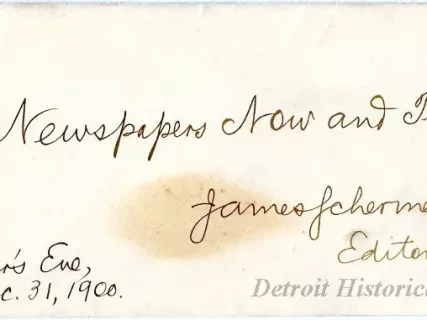 Newspapers Now and
James Scherme
Editor
r's Eve,
c. 31, 1900.
Detroit Historica